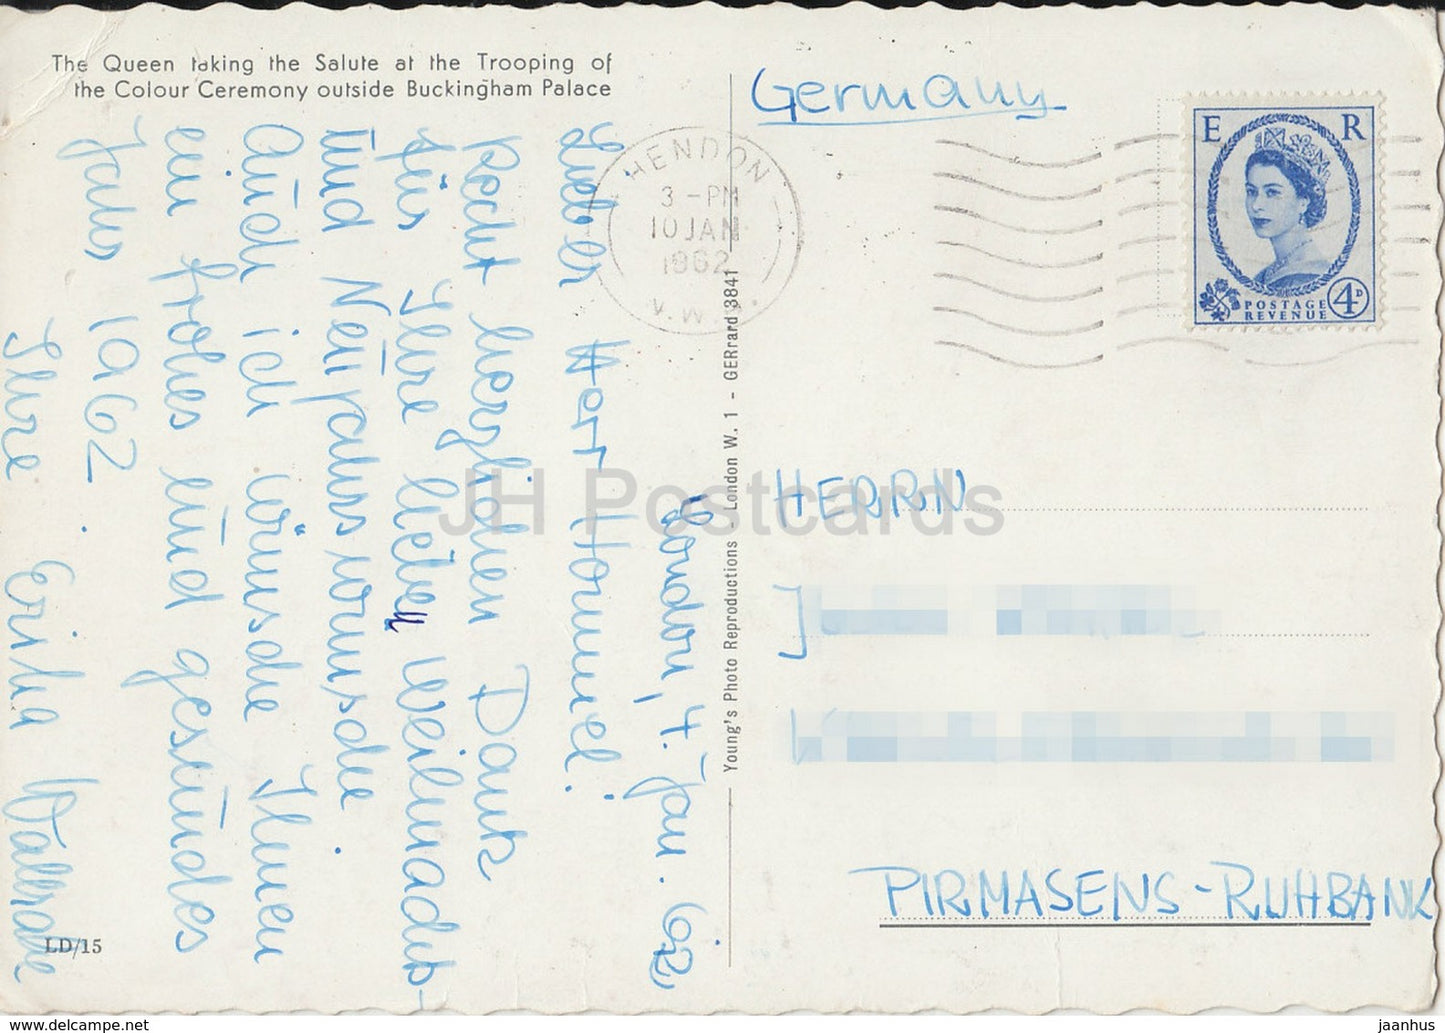 The Queen taking the Salute at the Trooping of
the Colour Ceremony outside Buckingham Palace
London, 4. Jan. 62
Lieber Herr Hommel!
Recht herzlichen Dank
für Ihre lieben Weihnachts-
und Neujahrswünsche
Auch ich wünsche Ihnen
ein frohes und gesundes
Jahr 1962.
Ihre Erika
LD/15
Young's Photo Reproductions - London W. 1 - GERrard 3841
HENDON
3 - PM
10 JAN
1962
N.W.4.
Germany
E R
POSTAGE
REVENUE
4D
HERRN
PIRMASENS-RUHBANK
JH Postcards
delcampe.net
jaanhus